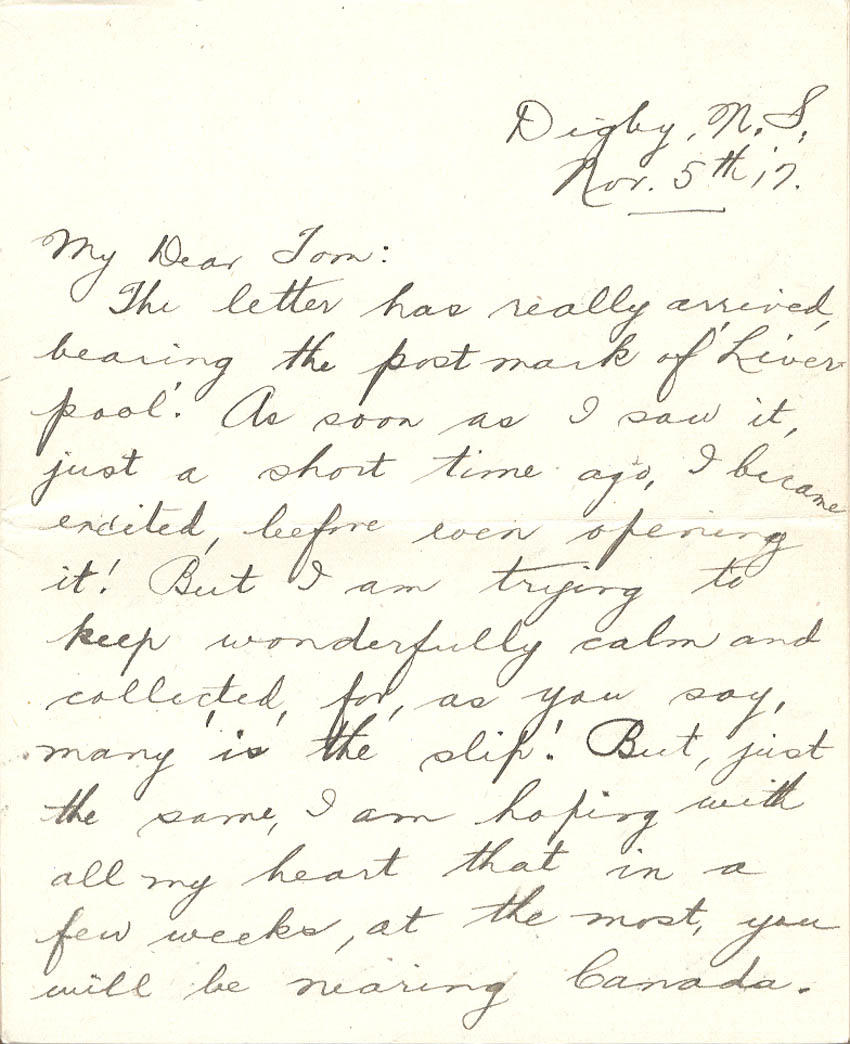 Digby, N.S.,
Nov. 5th, 17.
My Dear Tom:
The letter has really arrived,
bearing the post mark of 'Liver-
pool'. As soon as I saw it,
just a short time ago, I became
excited, before even opening
it! But I am trying to
keep wonderfully calm and
collected, for, as you say,
many 'is the slip'. But, just
the same, I am hoping with
all my heart that in a
few weeks, at the most, you
will be nearing Canada.